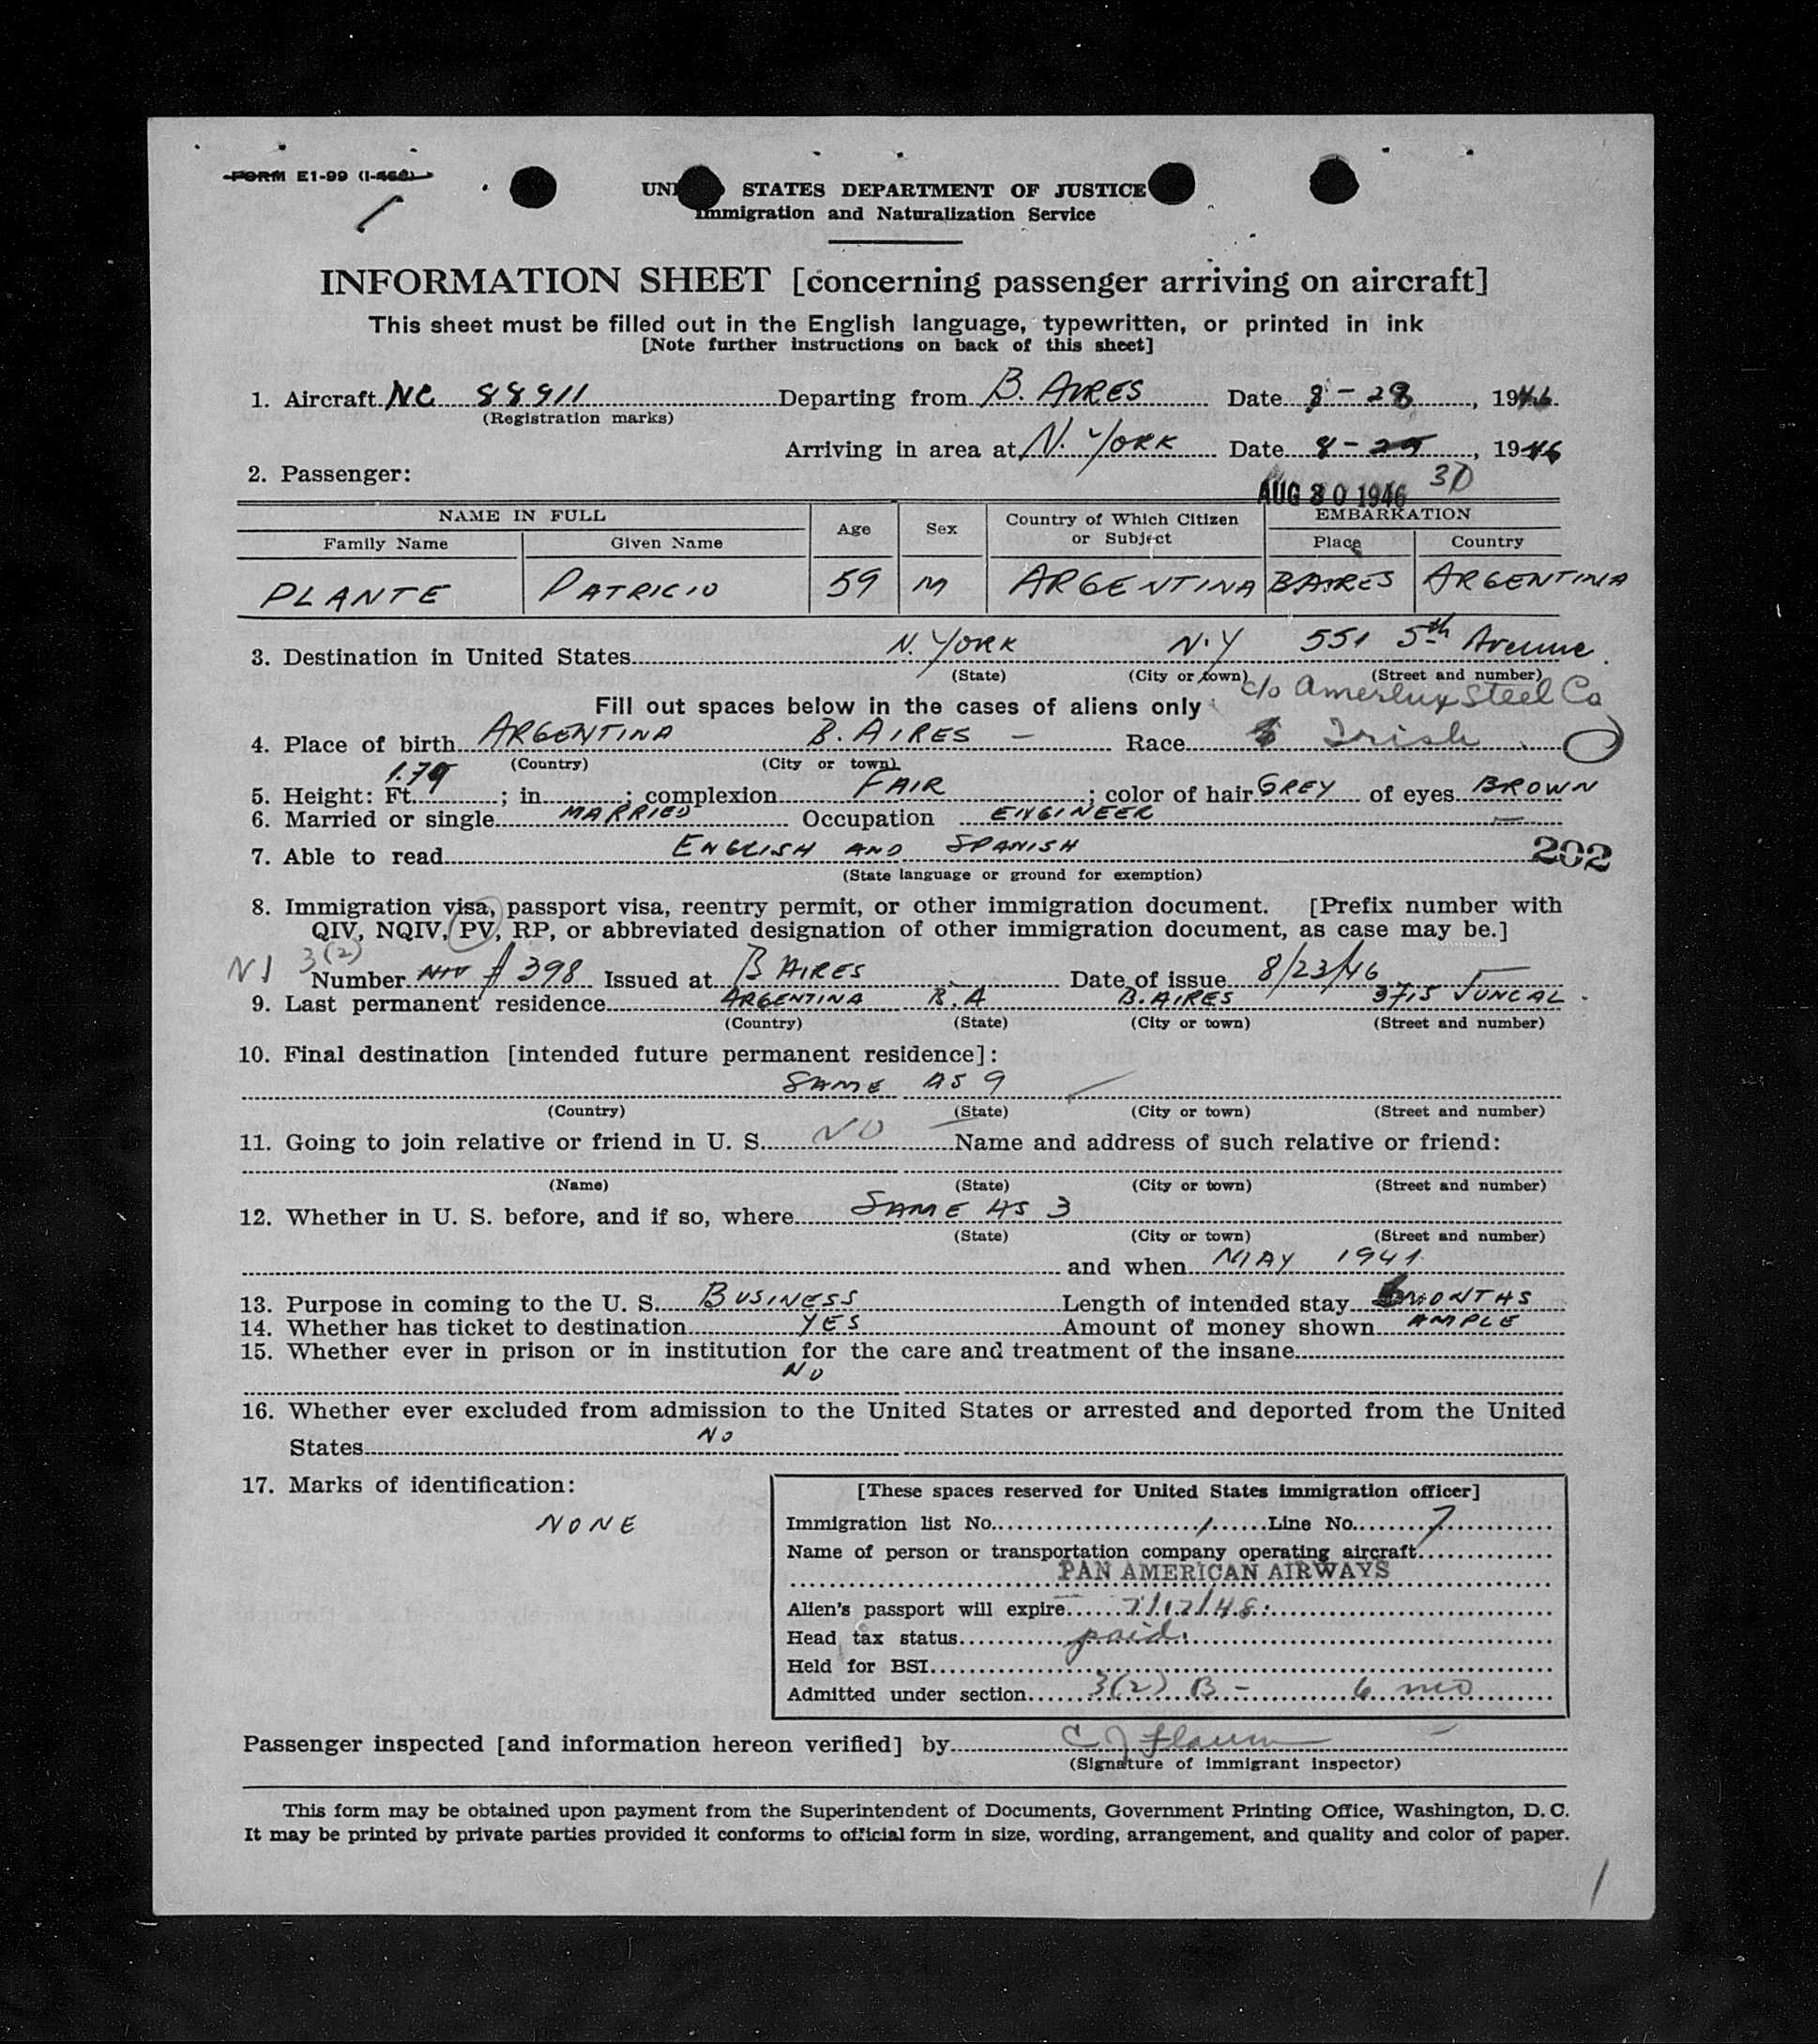 FORM E1-99 (I-466)
UNI STATES DEPARTMENT OF JUSTICE
Immigration and Naturalization Service
INFORMATION SHEET [concerning passenger arriving on aircraft]
This sheet must be filled out in the English language, typewritten, or printed in ink
[Note further instructions on back of this sheet]
1. Aircraft NC 88911 Departing from B. AIRES Date 8-28, 1946
(Registration marks)
Arriving in area at N. YORK Date 8-29, 1946
2. Passenger: 30
AUG 30 1946
NAME IN FULL Age Sex Country of Which Citizen or Subject EMBARKATION
Family Name Given Name Place Country
PLANTE PATRICIO 59 M ARGENTINA B AIRES ARGENTINA
3. Destination in United States N. YORK N.Y 551 5th Avenue
(State) (City or town) (Street and number)
c/o Amerlux Steel Co
Fill out spaces below in the cases of aliens only
4. Place of birth ARGENTINA B. AIRES - Race Irish
(Country) (City or town)
5. Height: Ft. 1.79; in; complexion FAIR; color of hair GREY of eyes BROWN
6. Married or single MARRIED Occupation ENGINEER
7. Able to read ENGLISH AND SPANISH 202
(State language or ground for exemption)
8. Immigration visa, passport visa, reentry permit, or other immigration document. [Prefix number with
QIV, NQIV, PV, RP, or abbreviated designation of other immigration document, as case may be.]
3(2)
Number NIV # 398 Issued at B AIRES Date of issue 8/23/46
9. Last permanent residence ARGENTINA B.A B. AIRES 3715 JUNCAL
(Country) (State) (City or town) (Street and number)
10. Final destination [intended future permanent residence]:
SAME AS 9
(Country) (State) (City or town) (Street and number)
11. Going to join relative or friend in U. S. NO Name and address of such relative or friend:
(Name) (State) (City or town) (Street and number)
12. Whether in U. S. before, and if so, where SAME AS 3
(State) (City or town) (Street and number)
and when MAY 1941
13. Purpose in coming to the U. S. BUSINESS Length of intended stay MONTHS
14. Whether has ticket to destination YES Amount of money shown AMPLE
15. Whether ever in prison or in institution for the care and treatment of the insane
NO
16. Whether ever excluded from admission to the United States or arrested and deported from the United
States NO
17. Marks of identification:
NONE
[These spaces reserved for United States immigration officer]
Immigration list No. 1 Line No. 7
Name of person or transportation company operating aircraft
PAN AMERICAN AIRWAYS
Alien's passport will expire 7/12/48
Head tax status paid
Held for BSI
Admitted under section 3(2) B - 6 mo
Passenger inspected [and information hereon verified] by C J Flaum
(Signature of immigrant inspector)
This form may be obtained upon payment from the Superintendent of Documents, Government Printing Office, Washington, D. C.
It may be printed by private parties provided it conforms to official form in size, wording, arrangement, and quality and color of paper.